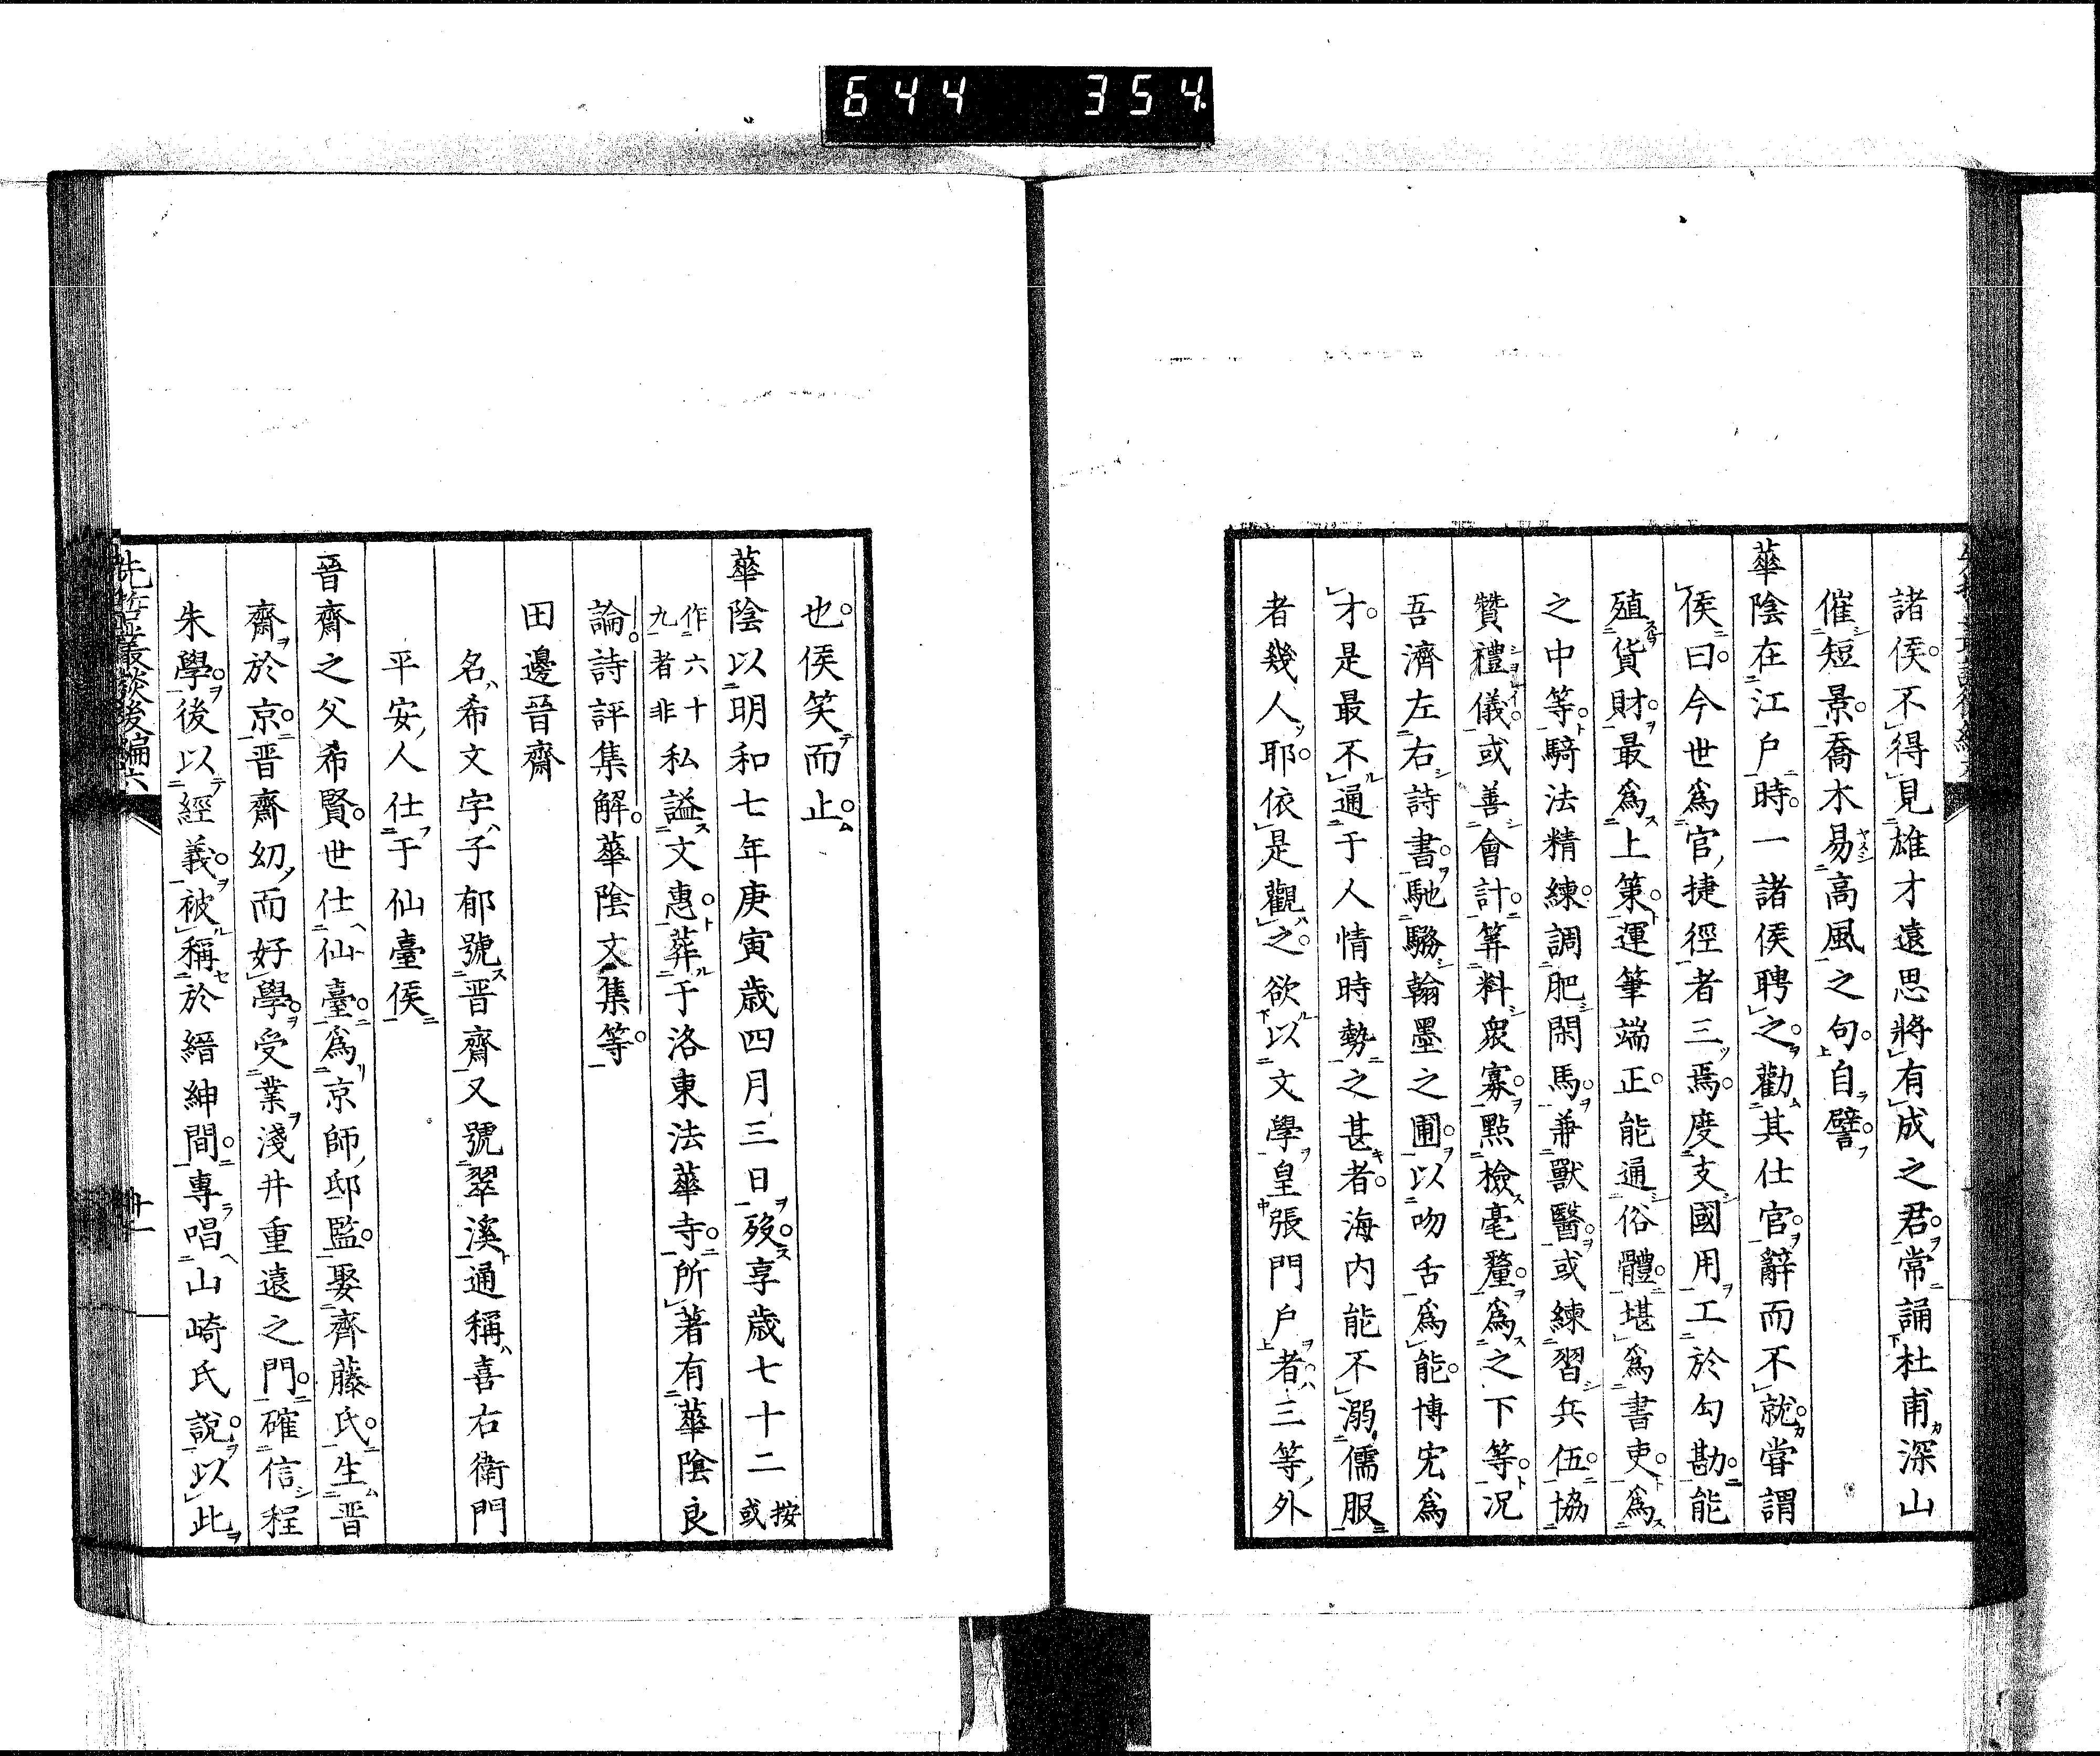 644 354
諸侯不得見雄才遠思將有成之君常誦杜甫深山
催短景喬木易高風之句自譬
華陰在江戶時一諸侯聘之勸其仕官辭而不就甞謂
侯曰今世爲官捷徑者三焉度支國用工於勾勘能
殖貨財最爲上策運筆端正能通俗體堪爲書吏爲
之中等騎法精練調肥閑馬兼獸醫或練習兵伍協
贊禮儀或善會計筭料衆寡點檢毫釐爲之下等況
吾濟左右詩書馳騖翰墨之圃以吻舌爲能博宏爲
才是最不通于人情時勢之甚者海内能不溺儒服
者幾人耶依是觀之欲以文學皇張門戶者三等外
也侯笑而止
華陰以明和七年庚寅歳四月三日歿享歳七十二按或
作六十九者非私謚文惠葬于洛東法華寺所著有華陰良
論詩評集解華陰文集等
田邊晉齋
名希文字子郁號晋齋又號翠溪通稱喜右衛門
平安人仕于仙臺侯
晉齋之父希賢世仕仙臺爲京師邸監娶齊藤氏生晋
齋於京晋齋幼而好學受業淺井重遠之門確信程
朱學後以經義被稱於縉紳間專唱山崎氏說以此
先哲叢談後編六
卅一